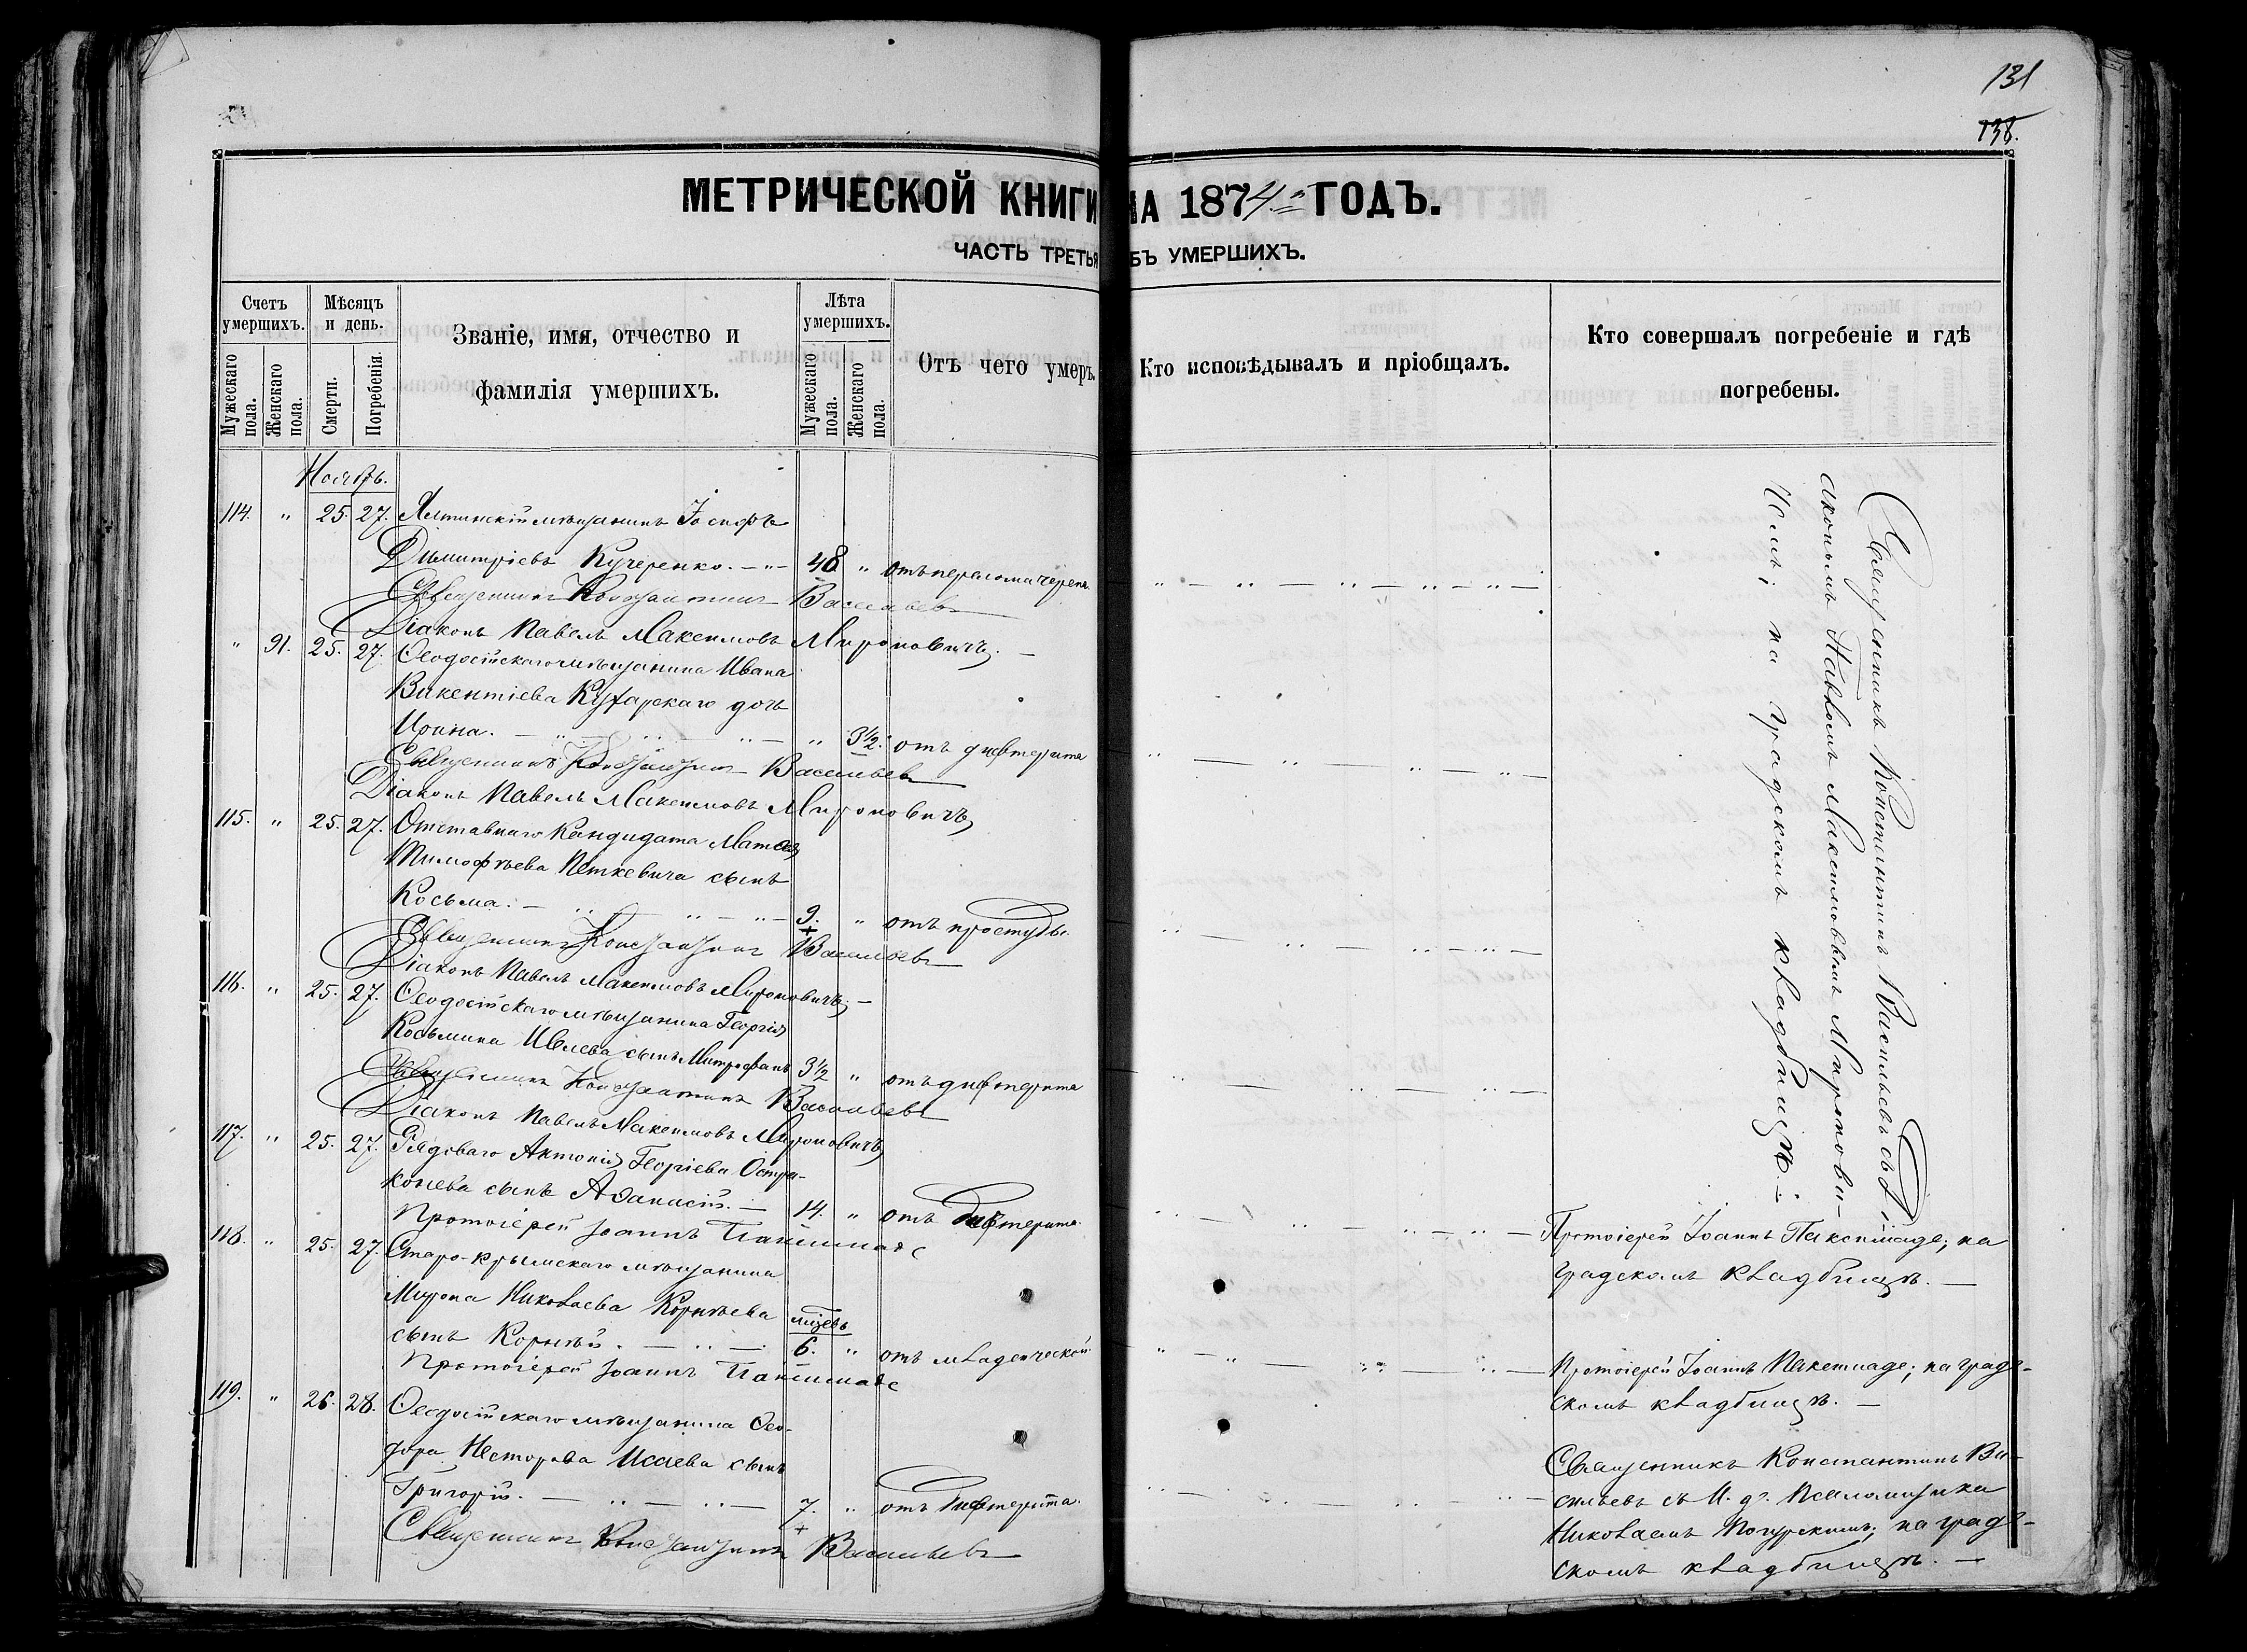 131
138.
МЕТРИЧЕСКОЙ КНИГИ НА 1874.го ГОДЪ.
ЧАСТЬ ТРЕТЬЯ БЪ УМЕРШИХЪ.
Счетъ умершихъ.
Мужескаго пола.
Женскаго пола.
Мѣсяцъ и день.
Смерти.
Погребенія.
Званіе, имя, отчество и
фамилія умершихъ.
Лѣта умершихъ.
Мужескаго пола.
Женскаго пола.
Отъ чего умеръ.
Кто исповѣдывалъ и пріобщалъ.
Кто совершалъ погребеніе и гдѣ
погребены.
Ноябрь.
114. " 25. 27. Ялтинскій мѣщанинъ Іосифъ
Димитріевъ Кучеренко. — " — 48 " отъ перелома черепа
Священникъ Константинъ Васильевъ
Діаконъ Павелъ Максимовъ Мироновичъ. —
" 91. 25. 27. Ѳеодосійскаго мѣщанина Ивана
Викентіева дочь
Ирина. — " — " — " 3½. отъ дифтерита
Священникъ Константинъ Васильевъ
Діаконъ Павелъ Максимовъ Мироновичъ
115. " 25. 27. Отставнаго Кандидата Матѳея
Тимофѣева Петкевича сынъ
Косьма. — " — " — 9. " отъ простуды.
Священникъ Константинъ Васильевъ
Діаконъ Павелъ Максимовъ Мироновичъ. —
116. " 25. 27. Ѳеодосійскаго мѣщанина Георгія
Косьмина Ивлева сынъ Митрофанъ 3½ " отъ дифтерита
Священникъ Константинъ Васильевъ
Діаконъ Павелъ Максимовъ Мироновичъ
117. " 25. 27. Рядоваго Антонія Георгіева Остри-
конева сынъ Аѳанасій. — 14. " отъ дифтерита.
Протоіерей Іоаннъ Паксимаде
118. " 25. 27. Старо-крымскаго мѣщанина
Мирона Николаева Корнѣева
сынъ Корнѣй. — " — мѣсѣцъ 6. " отъ младенческой
Протоіерей Іоаннъ Паксимаде
119. " 26. 28. Ѳеодосійскаго мѣщанина Ѳео-
дора Несторова Исаева сынъ
Григорій. — " — " — 7. " отъ дифтерита.
Священникъ Константинъ Васильевъ
Священникъ Константинъ Васильевъ съ Ді-
акономъ Павломъ Максимовымъ Миронови-
чемъ; на градскомъ кладбищѣ. —
Протоіерей Іоаннъ Паксимаде; на
градскомъ кладбищѣ. —
Протоіерей Іоаннъ Паксимаде; на град-
скомъ кладбищѣ. —
Священникъ Константинъ Ва-
сильевъ съ И. д. Псаломщика
Николаемъ; на град-
скомъ кладбищѣ. —